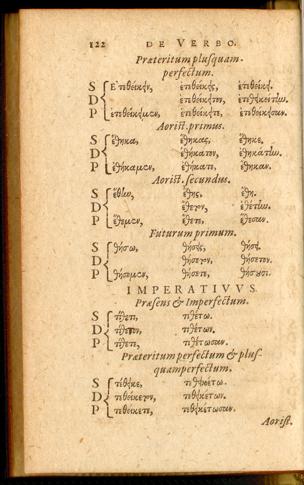 122 DE VERBO.
Præteritum plusquam-
perfectum.
S ἐτιθείκην, ἐτιθείκης, ἐτιθείκη.
D
P ἐτιθείκημεν, ἐτιθείκητε, ἐτιθείκησαν.
Aorist. primus.
S ἔθηκα, ἔθηκας, ἔθηκε.
D ἐθήκατον, ἐθηκάτην.
P ἐθήκαμεν, ἐθήκατε, ἔθηκαν.
Aorist. secundus.
S ἔθην, ἔθης, ἔθη.
D ἔθετον, ἐθέτην.
P ἔθεμεν, ἔθετε, ἔθεσαν.
Futurum primum.
S θήσω, θήσεις, θήσει.
D θήσετον, θήσετον.
P θήσομεν, θήσετε, θήσουσι.
IMPERATIVVS.
Præsens & Imperfectum.
S τίθετι, τιθέτω.
D τίθετον, τιθέτων.
P τίθετε, τιθέτωσαν.
Præteritum perfectum & plus-
quamperfectum.
S τέθεικε, τεθεικέτω.
D τεθείκετον, τεθεικέτων.
P τεθείκετε, τεθεικέτωσαν.
Aorist.